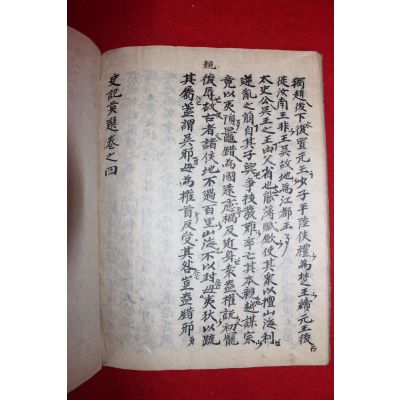 獨趙後下復置元王少子平陸侯禮為楚王續元王後
徙汝南王非王吳故地為江都王
太史公吳王之王由父省也能薄賦歛使其衆以擅山海利
逆亂之萌自其子興爭技發難卒亡其本親越謀宗
竟以夷隕鼂錯為國遠慮禍反近身袁盎權說初寵
親
後辱故古者諸侯地不過百里山海不以封毋夷狄以疏
其屬蓋謂吳邪毋為權首反受其咎豈盎錯邪
史記英選卷之四